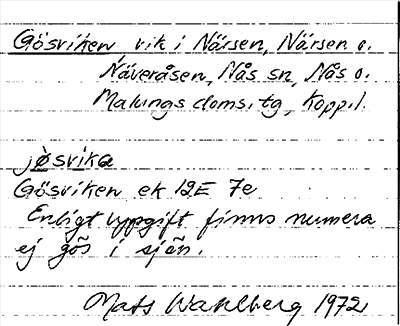 Gösviken vik i Närsen, Närsen o.
Näveråsen, Nås sn, Nås o.
Malungs doms.tg, Kopp.l.
jøsvika
Gösviken ek 12E 7e
Enligt uppgift finns numera
ej gös i sjön.
Mats Wahlberg 1972